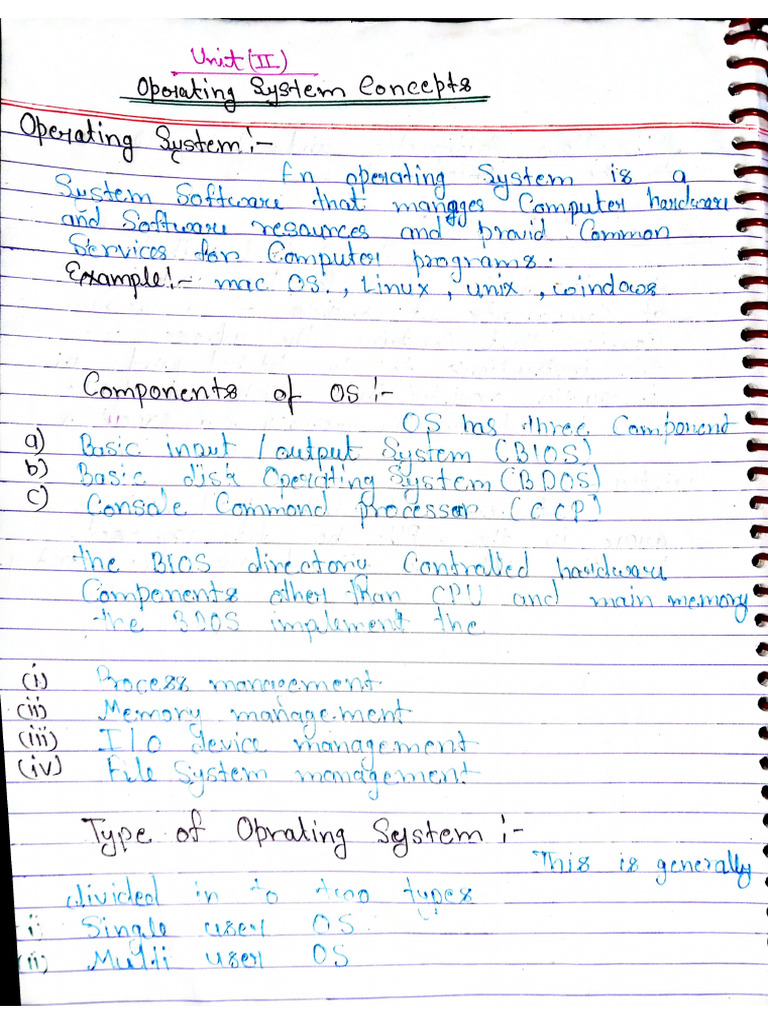 Unit (II)
Operating System Concepts
Operating System :-
En operating System is a
System Software that manages Computer hardware
and Software resources and provid Common
Services for Computer programs.
Example :- mac OS. , Linux , unix , windows
Components of OS :-
OS has three Component
a) Basic input / output System (BIOS)
b) Basic disk Operating System (BDOS)
c) Console Command processor (CCP)
the BIOS directory Controlled hardware
Components other than CPU and main memory
the BDOS implement the
(i) Process management
(ii) Memory management
(iii) I/O device management
(iv) File System management
Type of Oprating System :-
This is generally
divided in to two types
i) Single user OS
(ii) Multi user OS